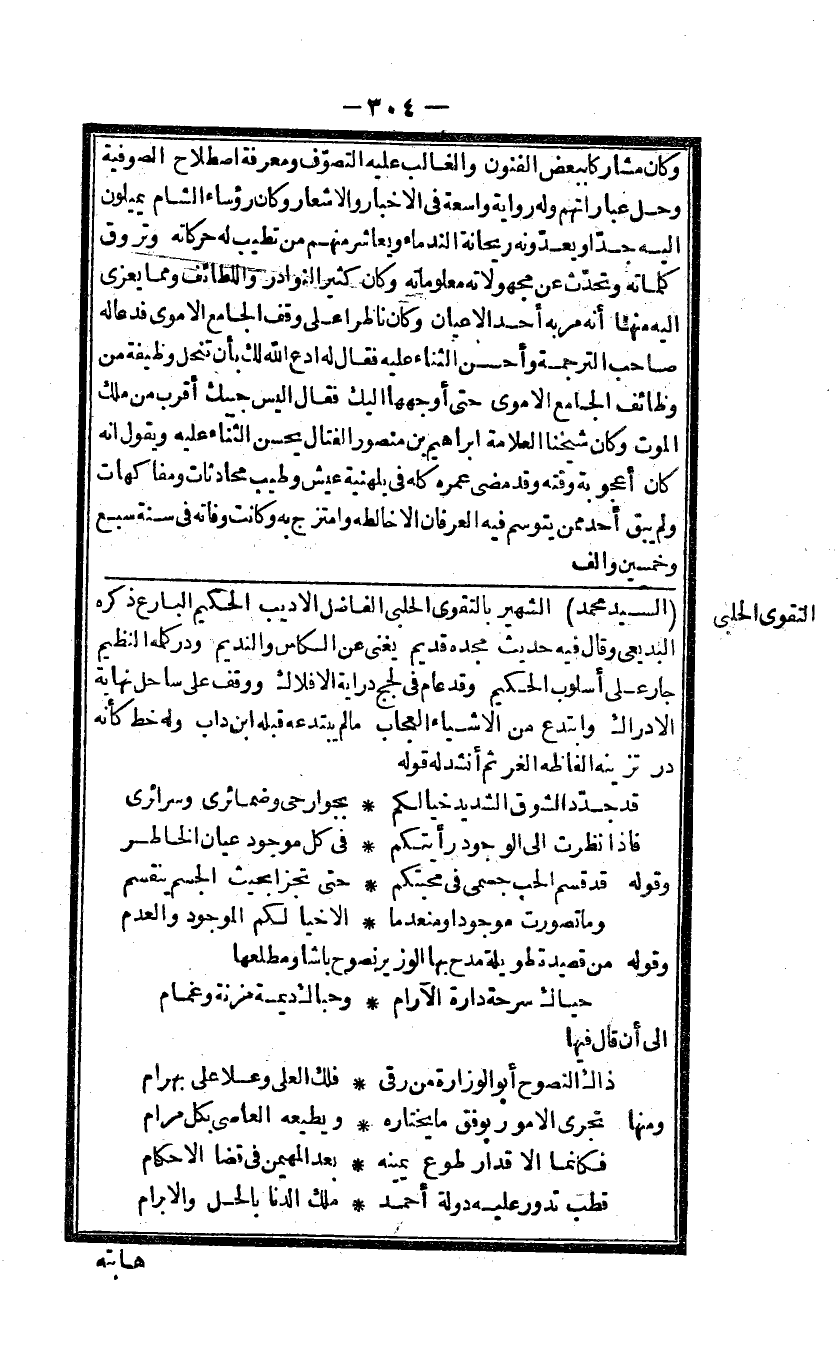 — ٣٠٤ —
وكان مشاركا ببعض الفنون والغالب عليه التصوّف ومعرفة اصطلاح الصوفية
وحل عباراتهم وله رواية واسعة فى الاخبار والاشعار وكان رؤساء الشام يميلون
اليه جدّا ويعدّونه ريحانة الندماء ويعاشر منهم من تطيب له حركاته وتروق
كلماته ويتحدّث عن مجهولاته معلوماته وكان كثير النوادر واللطائف ومما يعزى
اليه منها أنه مر به أحد الاعيان وكان ناظرا على وقف الجامع الاموى فدعاله
صاحب الترجمة وأحسن الثناء عليه فقال له ادع الله لك بأن تنحل وظيفة من
وظائف الجامع الاموى حتى أوجهها اليك فقال اليس جيبك أقرب من ملك
الموت وكان شيخنا العلامة ابراهيم بن منصور الفتال يحسن الثناء عليه ويقول انه
كان أعجوبة وقته وقد مضى عمره كله فى بلهنية عيش وطيب محادثات ومفاكهات
ولم يبق أحد ممن يتوسم فيه العرفان الا خالطه وامتزج به وكانت وفاته فى سنة سبع
وخمسين والف
التقوى الحلبى
(السيد محمد) الشهير بالتقوى الحلبى الفاضل الاديب الحكيم البارع ذكره
البديعى وقال فيه حديث مجده قديم يغنى عن الكاس والنديم ودركله النظيم
جار على أسلوب الحكيم وقد عام فى لجج دراية الافلاك ووقف على ساحل نهاية
الادراك وابتدع من الاشياء العجاب مالم يبتدعه قبله ابن داب وله خط كأنه
در تزينه الفاظه الغر ثم أنشد له قوله
قد جدّد الشوق الشديد خيالكم * بجوارحى وضمائرى وسرائرى
فاذا نظرت الى الوجود رأيتكم * فى كل موجود عيان الخاطر
وقوله قد قسم الحب جسمى فى محبتكم * حتى تجزا بحيث الجسم ينقسم
وما تصورت موجودا ومنعدما * الا خيالكم الموجود والعدم
وقوله من قصيدة طويلة مدح بها الوزير نصوح باشا ومطلعها
حياك سرحة دارة الآرام * وحباك ديمة مزنة وغمام
الى أن قال فيها
ذاك النصوح أبو الوزارة من رقى * فلك العلى وعلا على بهرام
ومنها تجرى الامور بوفق ما يختاره * ويطيعه العاصى بكل مرام
فكانما الاقدار طوع يمينه * بعد المهيمن فى قضا الاحكام
قطب تدور عليه دولة أحمد * ملك الدنا بالحل والابرام
هابته